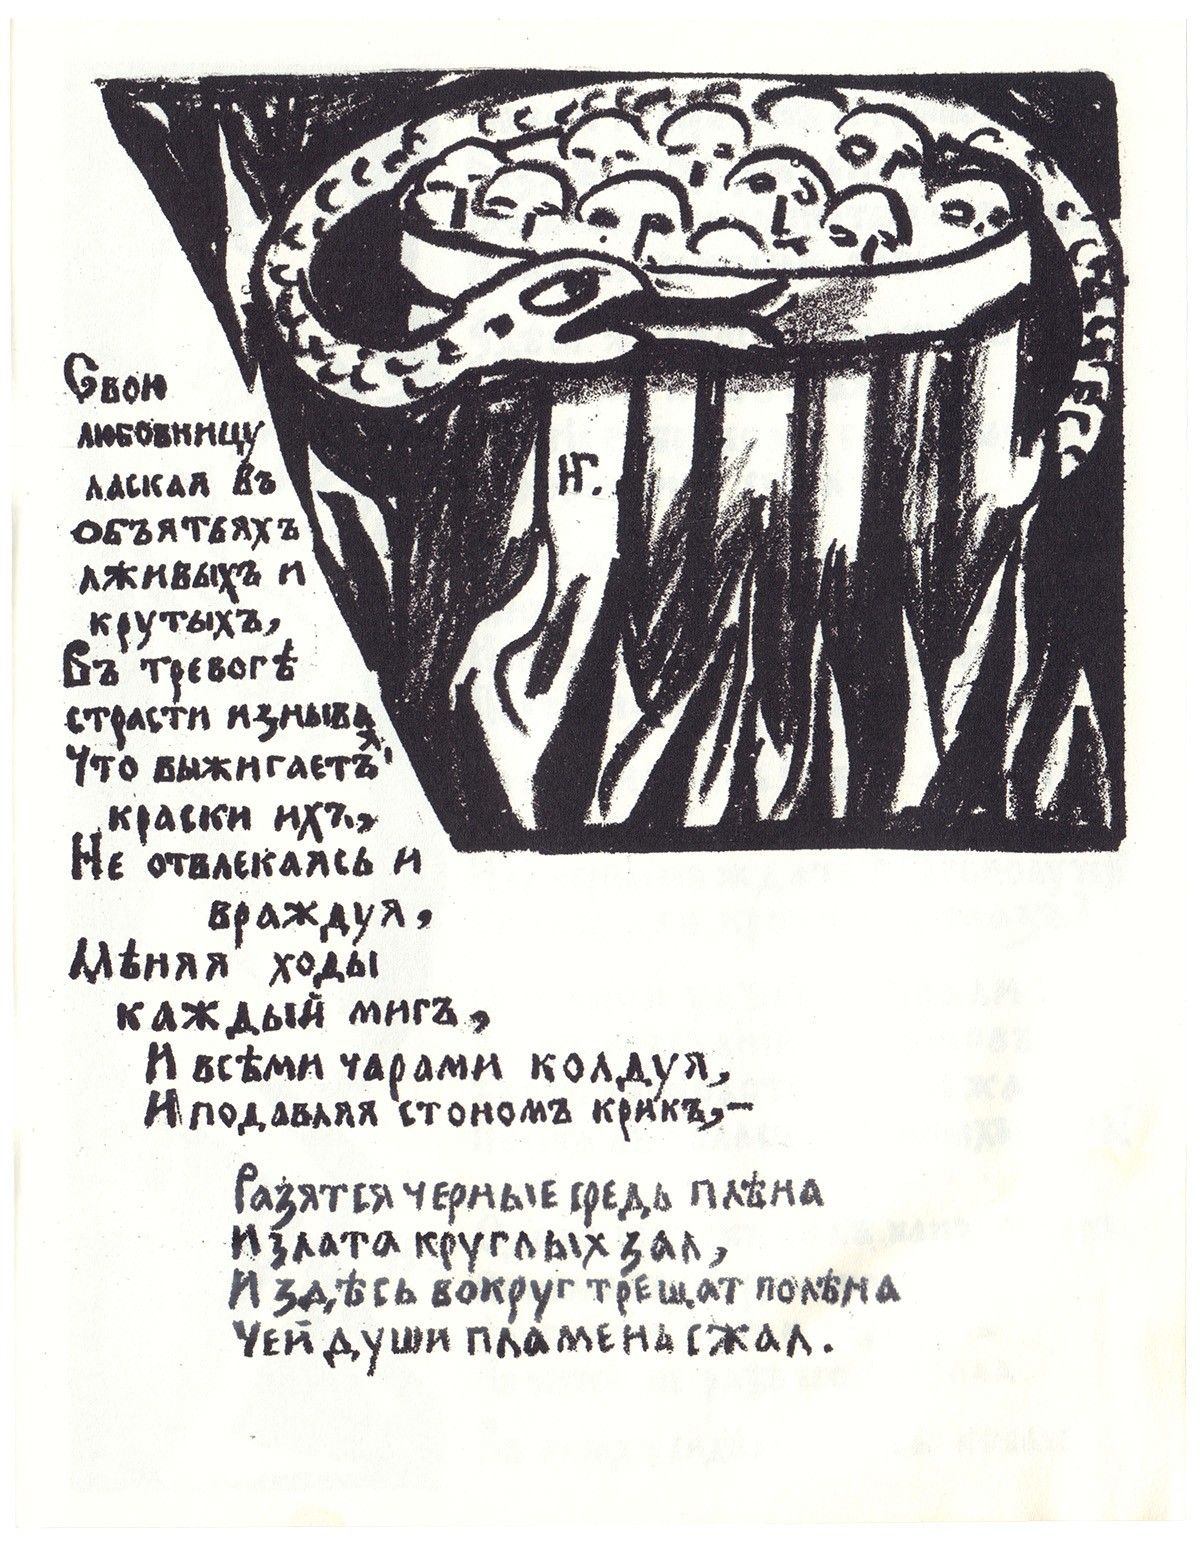 Свою
любовницу
лаская въ
объятьяхъ
лживыхъ и
крутыхъ,
Въ тревогѣ
страсти изнывая
Что выжигаетъ
краски ихъ,
Не отвлекаясь и
враждуя,
Мѣняя ходы
каждый мигъ,
И всѣми чарами колдуя,
И подавляя стономъ крикъ,—
Разятся черные средь плѣна
И злата круглых зал,
И здѣсь вокруг трещат полѣна
Чей души пламень сжал.
НГ.